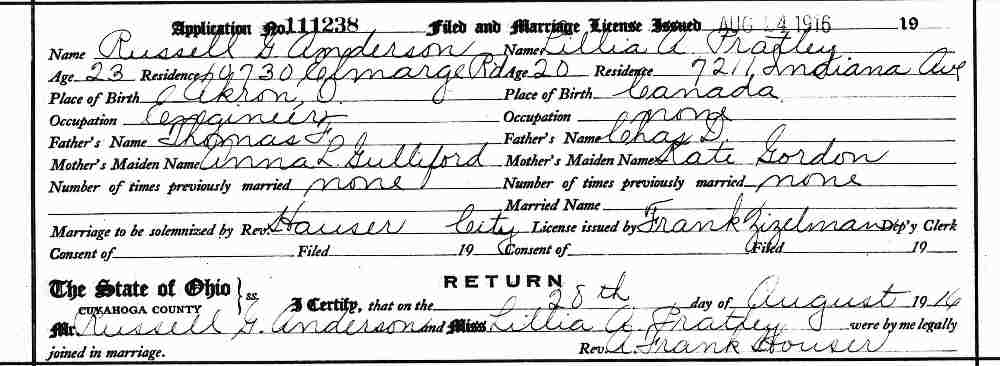 Application No. 111238 Filed and Marriage License Issued AUG 14 1916 19
Name Russell G Anderson Name Lillia A Pratley
Age 23 Residence Rd Age 20 Residence 7211 Indiana Ave
Place of Birth Akron, O. Place of Birth Canada
Occupation Engineer Occupation none
Father's Name Thomas F. Father's Name Chas D.
Mother's Maiden Name Anna L Gulliford Mother's Maiden Name Kate Gordon
Number of times previously married none Number of times previously married none
Married Name
Marriage to be solemnized by Rev. Hauser City License issued by Frank Zizelman Dep'y Clerk
Consent of Filed 19 Consent of Filed 19
RETURN
The State of Ohio } ss.
CUYAHOGA COUNTY I Certify, that on the 28th day of August 1916
Mr. Russell G. Anderson and Miss Lillia A Pratley were by me legally
joined in marriage. Rev. A. Frank Houser